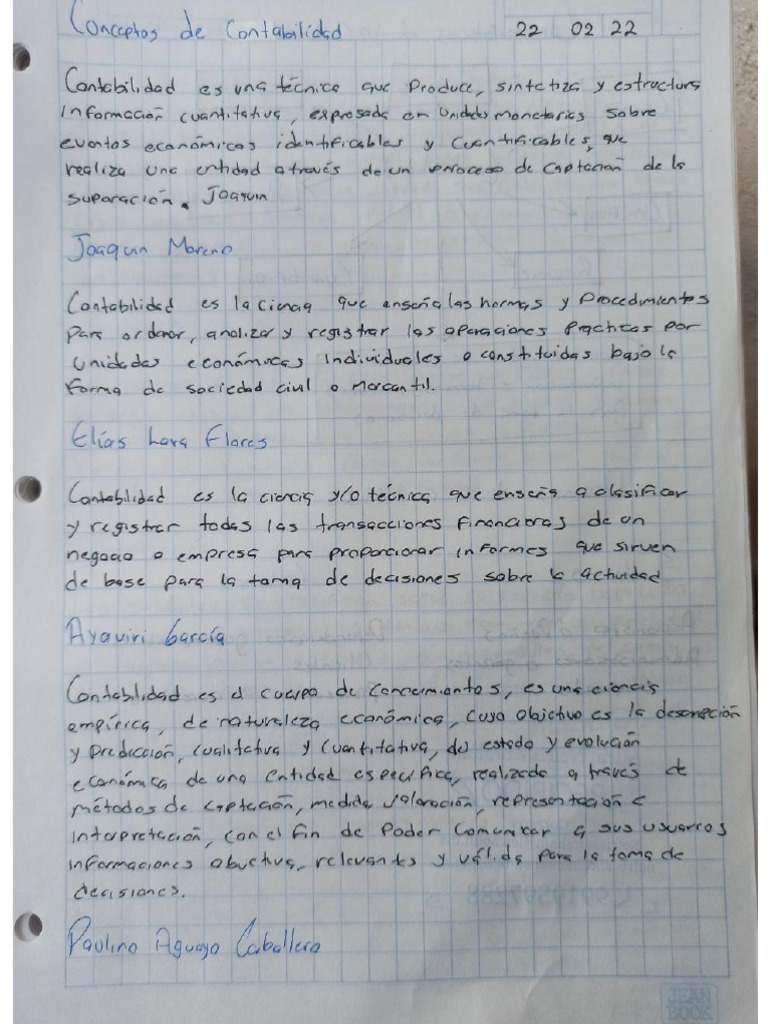 Conceptos de Contabilidad 22 02 22
Contabilidad es una técnica que produce, sintetiza y estructura
información cuantitativa, expresada en unidades monetarias sobre
eventos económicos identificables y cuantificables, que
realiza una entidad através de un proceso de captación de la
suparación. Joaquin
Joaquin Moreno
Contabilidad es la ciencia que enseña las normas y procedimientos
para ordenar, analizar y registrar las operaciones practicas por
unidades económicas individuales o constituidas bajo la
forma de sociedad civil o mercantil.
Elías Lara Flores
Contabilidad es la ciencia y/o técnica que enseña a clasificar
y registrar todas las transacciones financieras de un
negocio o empresa para proporcionar informes que sirven
de base para la toma de decisiones sobre la actividad
Ayaviri García
Contabilidad es el cuerpo de conocimientos, es una ciencia
empírica, de naturaleza económica, cuyo objetivo es la descripción
y predicción, cualitativa y cuantitativa, del estado y evolución
económica de una entidad específica, realizada a través de
métodos de captación, medida, valoración, representación e
interpretación, con el fin de poder comunicar a sus usuarios
informaciones objectiva, relevantes y válida para la toma de
decisiones.
Paulino Aguayo Caballero
JEAN
BOOK